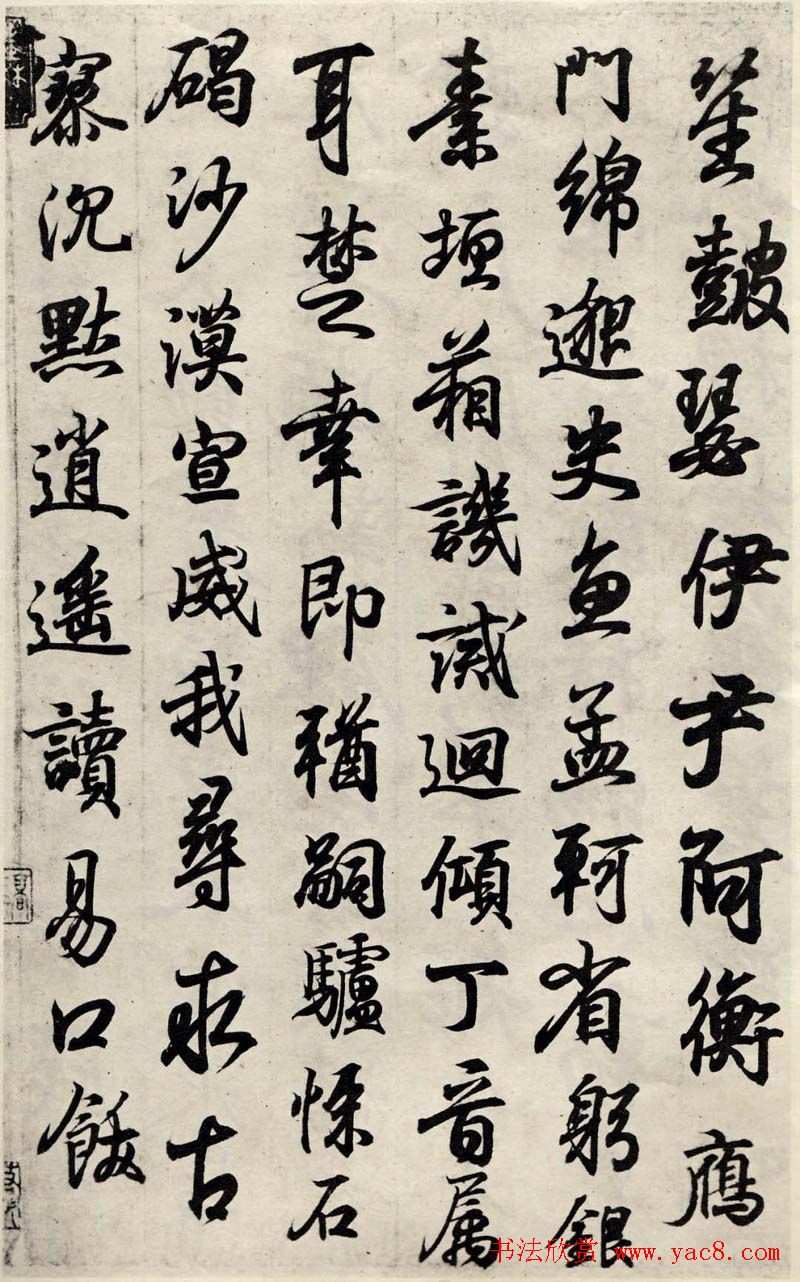 笙皷瑟伊尹阿衡鴈
門綿邈史魚孟軻省躬銀
素垣譏誡迴傾丁音屬
耳楚幸即猶嗣驢慄石
碣沙漠宣威我尋求古
寮沉默逍遙讀易口
书法欣赏 www.yac8.com